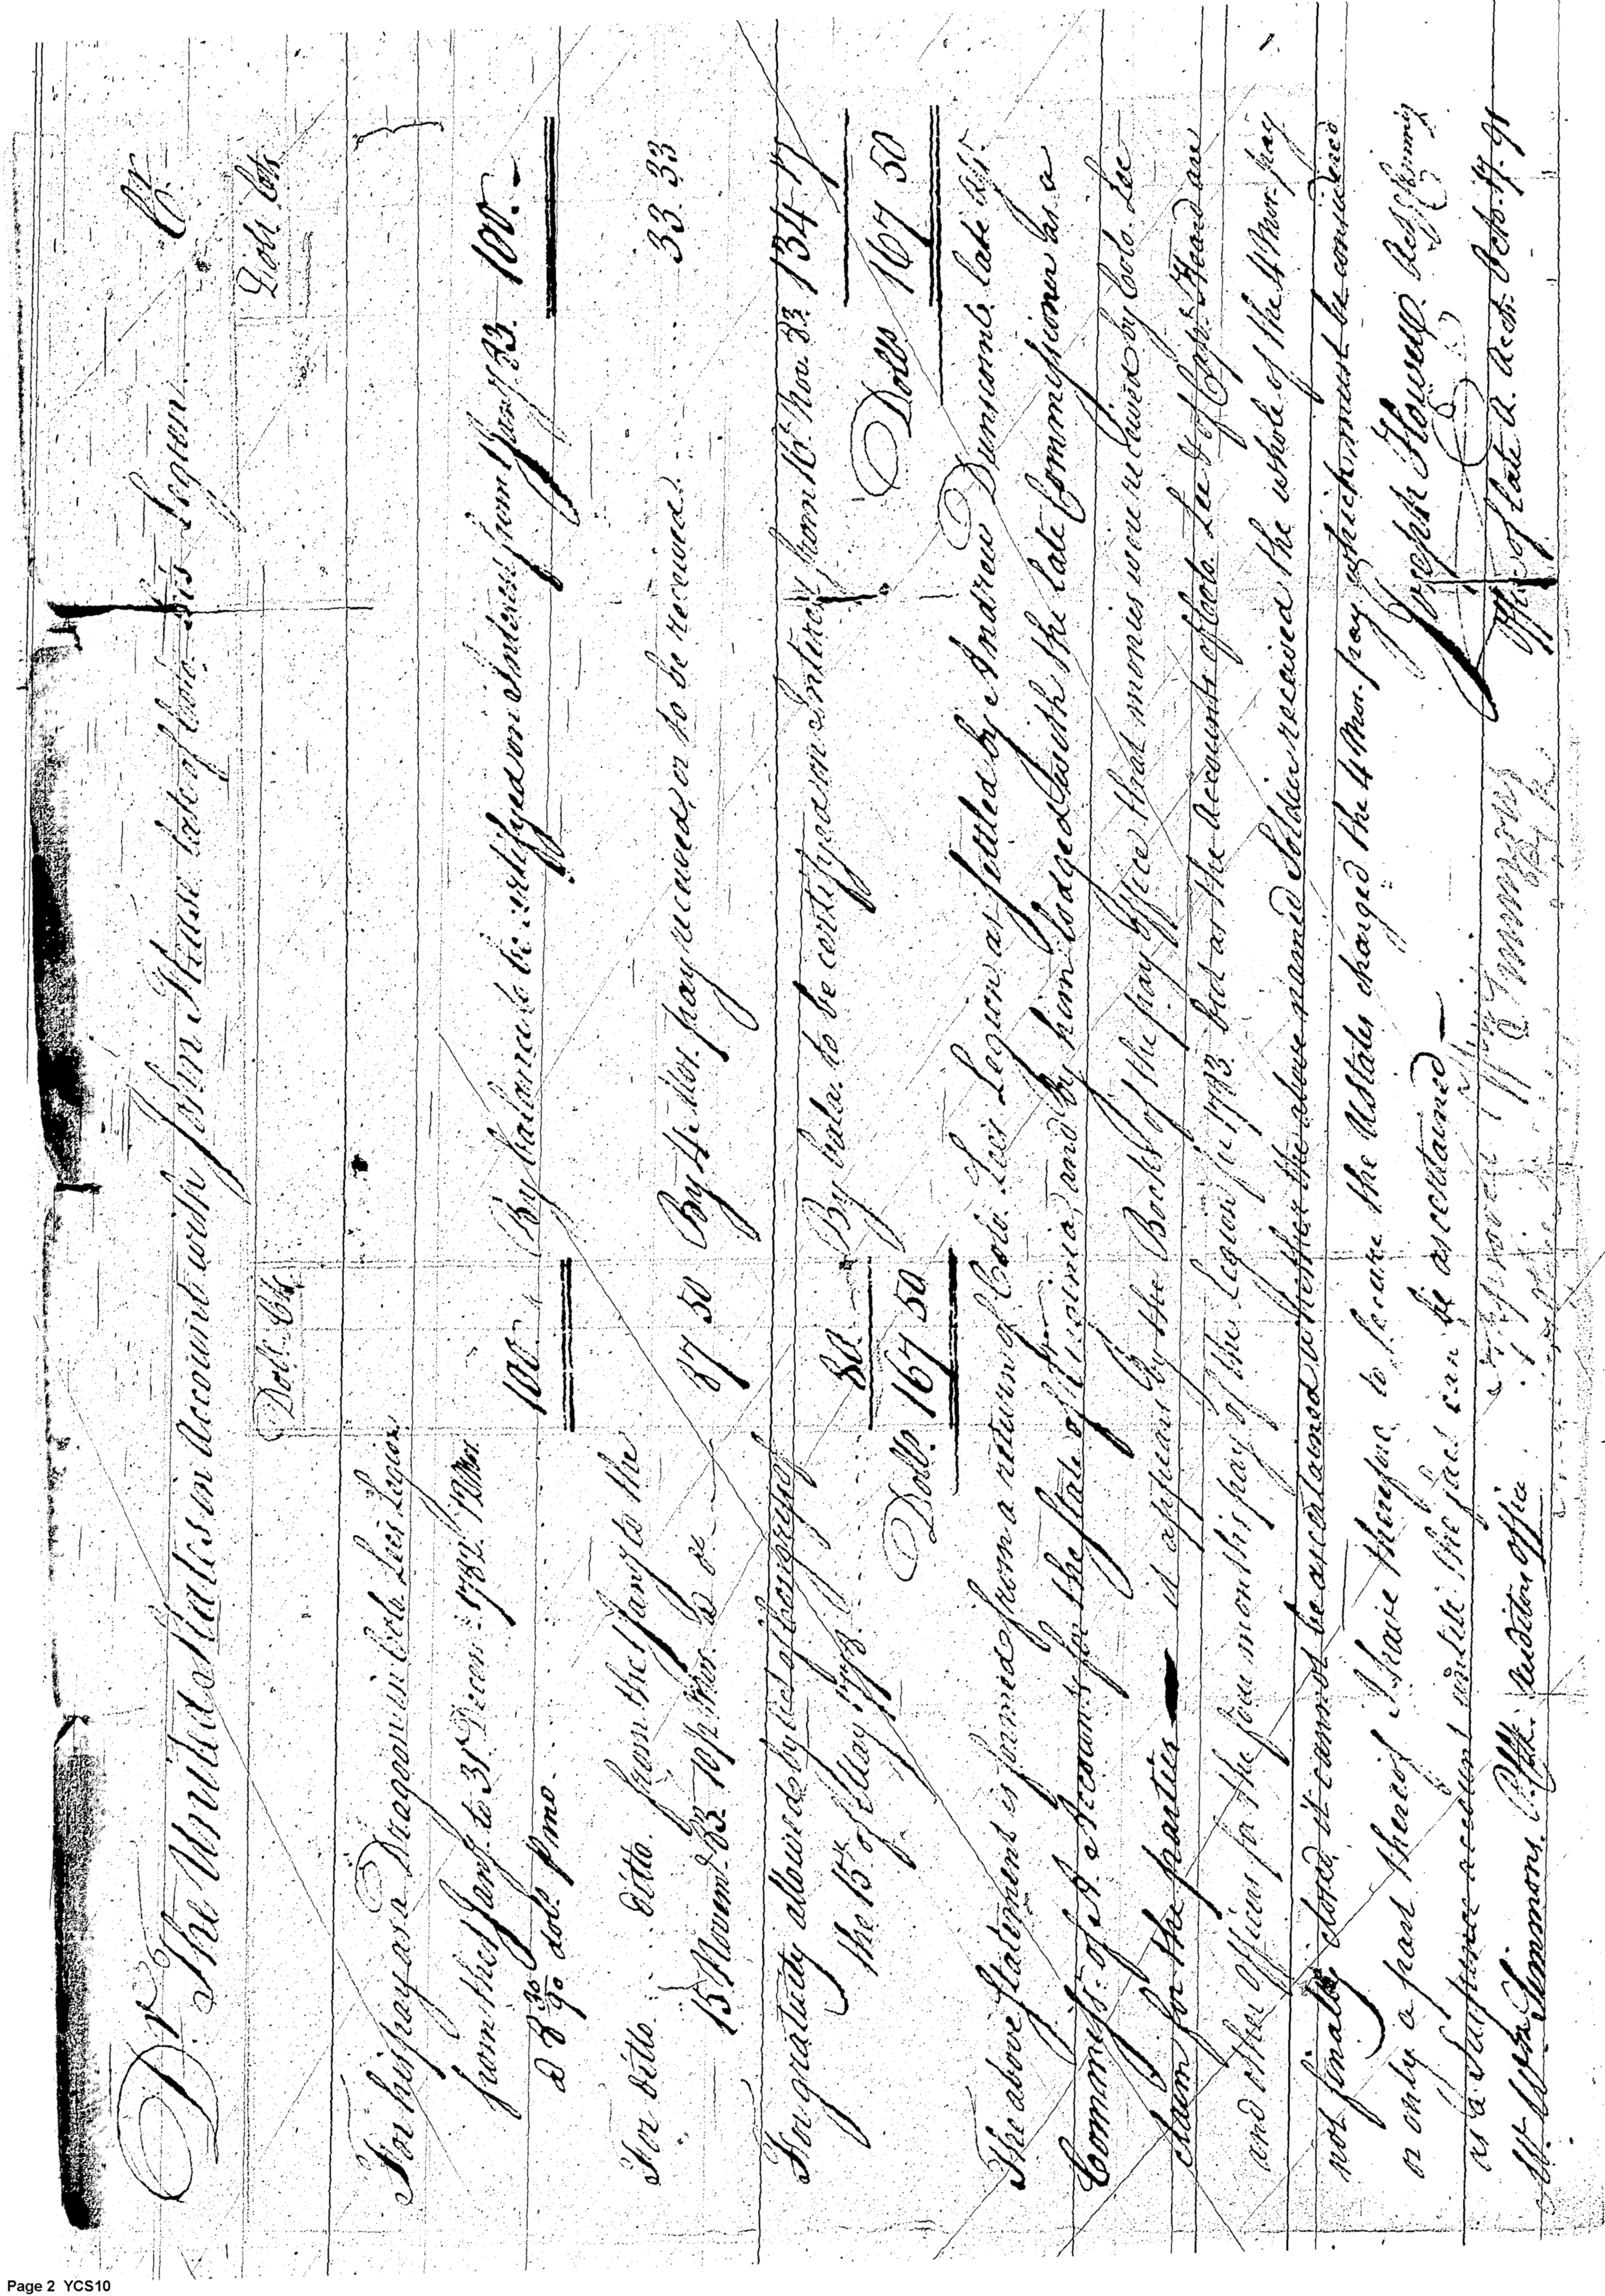 Dr. The United States in Account with John Hase late of Colo. Lee's Legion. Cr.
Dolls. Cts.
Dolls Cts
For his pay as a Dragoon in Colo. Lees Legion
from the 1 Jany. to 31st Decem. 1782. 12 Mos.
a 8 30/90 dolls. P mo.
100.
By balance to be certifyed on Interest from 1 Jany 83. 100.
For ditto ditto. from the 1 Jany to the
15 Novem. 83. 10 1/2 Mos. a do
87 50
By 4 Mos. pay received, or to be received. 33. 33
For gratuity allowed by Act of Congress of
the 15th. of May 1778.
80.
By bala. to be certifyed on Interest from 16th. Nov. 83. 134. 17
Dolls. 167 50
Dolls 167 50
The above Statement is formed from a return of Colo. Lees Legion as settled by Andrew Dunscomb late Asst.
Commissr. of A. Accounts for the State of Virginia, and by him lodged with the late Commissioner as a
claim for the parties it appears by the Books of the pay Office that monies were received by Colo. Lee
and other Officers for the four months pay of the Legion in 1783. but as the Accounts of Colo. Lee & of Capt. Heard are
not finally closed, it cannot be ascertained whether the above named Soldier received the whole of the 4 Mos. pay
or only a part thereof I have therefore to secure the UStates charged the 4 Mos. pay which must be considered
as a Suspence account untill the fact can be ascertained
Joseph Howell
Wm. Simmons. Auditors office
Approved
Office of late A. Acctt. Octo. 17. 91
Page 2 YCS10